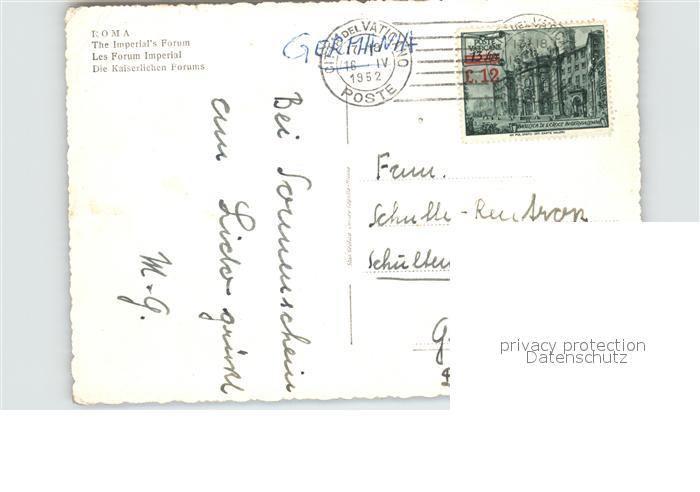 ROMA
The Imperial's Forum
Les Forum Imperial
Die Kaiserlichen Forums
GERMANIA
CITTÀ DEL VATICANO
16 IV
1952
POSTE
POSTE
VATICANE
£.12
BASILICA DI S.CROCE IN GERUSALEMME
Bei Sonnenschein
am Lido grüßt
M+G.
Fam.
Schulte-Rentrop
Schulten
privacy protection
Datenschutz